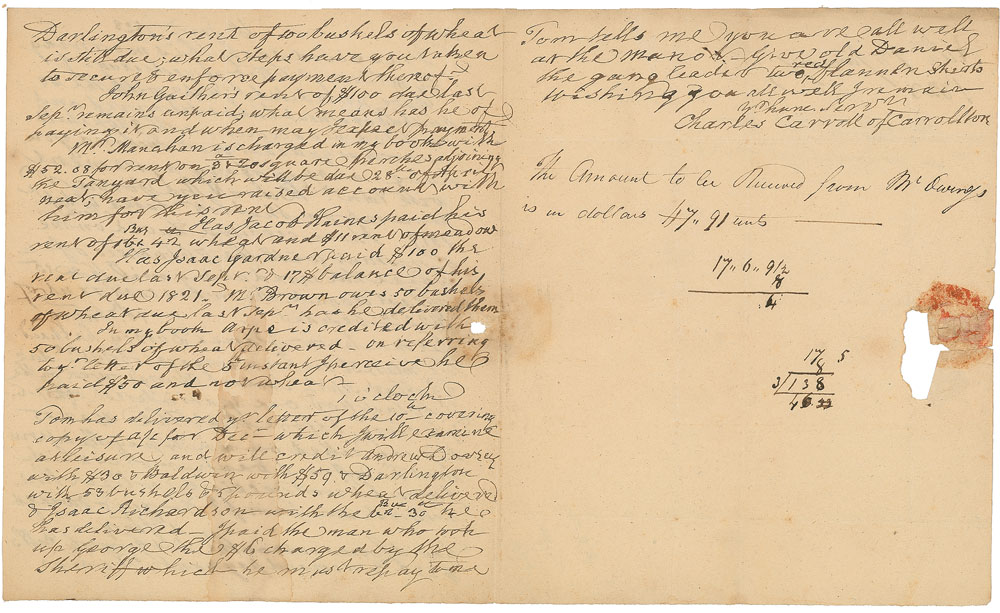 Darlington's rent of 100 bushels of wheat
is still due; what steps have you taken
to secure & enforce payment thereof—
John Gaither's rent of $100 due last
Sepr. remains unpaid; what means has he of
paying it and when may I expect payment
Mr. Manahan is charged in my books with
$52.08 for rent on 3 a & 20 square perches adjoining
the Tanyard which will be due 28th of
next; have you raised account with
him for this rent
Has Jacob Haines paid his
rent of Bus 16 & 42 wheat and $11 rent of meadow
Has Isaac Gardner paid $100 the
rent due last Sepr. & 17$ balance of his
rent due 1821. Mr. Brown owes 50 bushels
of wheat due last Sepr. has he delivered them
In my book is credited with
50 bushels of wheat delivered— on referring
to yr. letter of the 5 instant I perceive he
paid $50 and not wheat
o'clock
Tom has delivered yr letter of the 10th covering
copy of a/c for Dec— which I will examine
at leisure, and will credit Andrew Dorsey
with $30 & Baldwin with $59 & Darlington
with 53 bushels & 5 pounds wheat delivered
& Isaac Richardson with the he
has delivered— I paid the man who took
up George the $6 charged by the
Sheriff which he must repay to me
Tom tells me you are all well
at the manor. Give old Daniel
the gang leader two red flannen shirts
wishing you all well I remain
Yr hume Servt
Charles Carroll of Carrollton
The Amount to be Received from Mr Owings
is in dollars 47„ 91 cents
17„ 6„ 9½
8
4
17 5
8
3/138
46